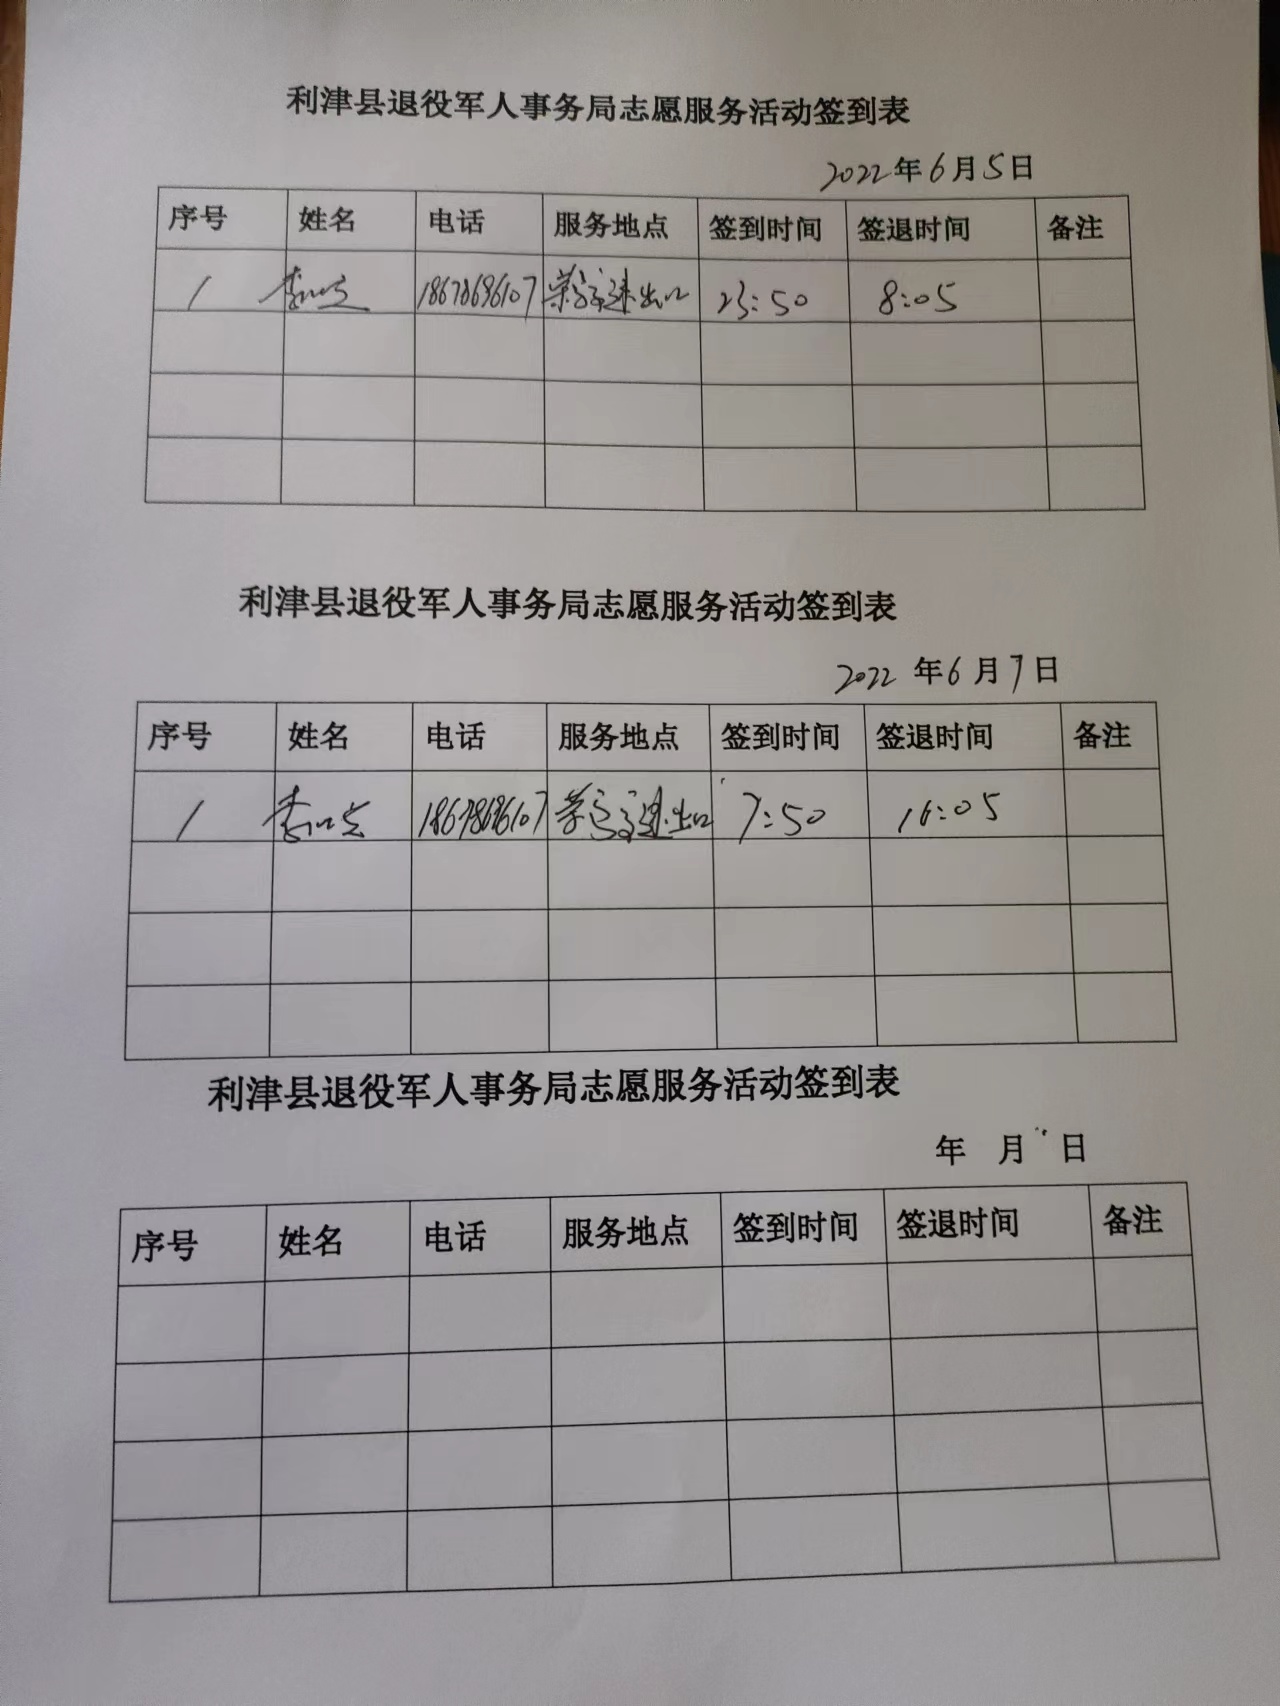 利津县退役军人事务局志愿服务活动签到表
2022年6月5日
序号 姓名 电话 服务地点 签到时间 签退时间 备注
1 李 18678696107 高速出口 23:50 8:05
利津县退役军人事务局志愿服务活动签到表
2022年6月7日
序号 姓名 电话 服务地点 签到时间 签退时间 备注
1 李 18678696107 高速出口 7:50 16:05
利津县退役军人事务局志愿服务活动签到表
年 月 日
序号 姓名 电话 服务地点 签到时间 签退时间 备注